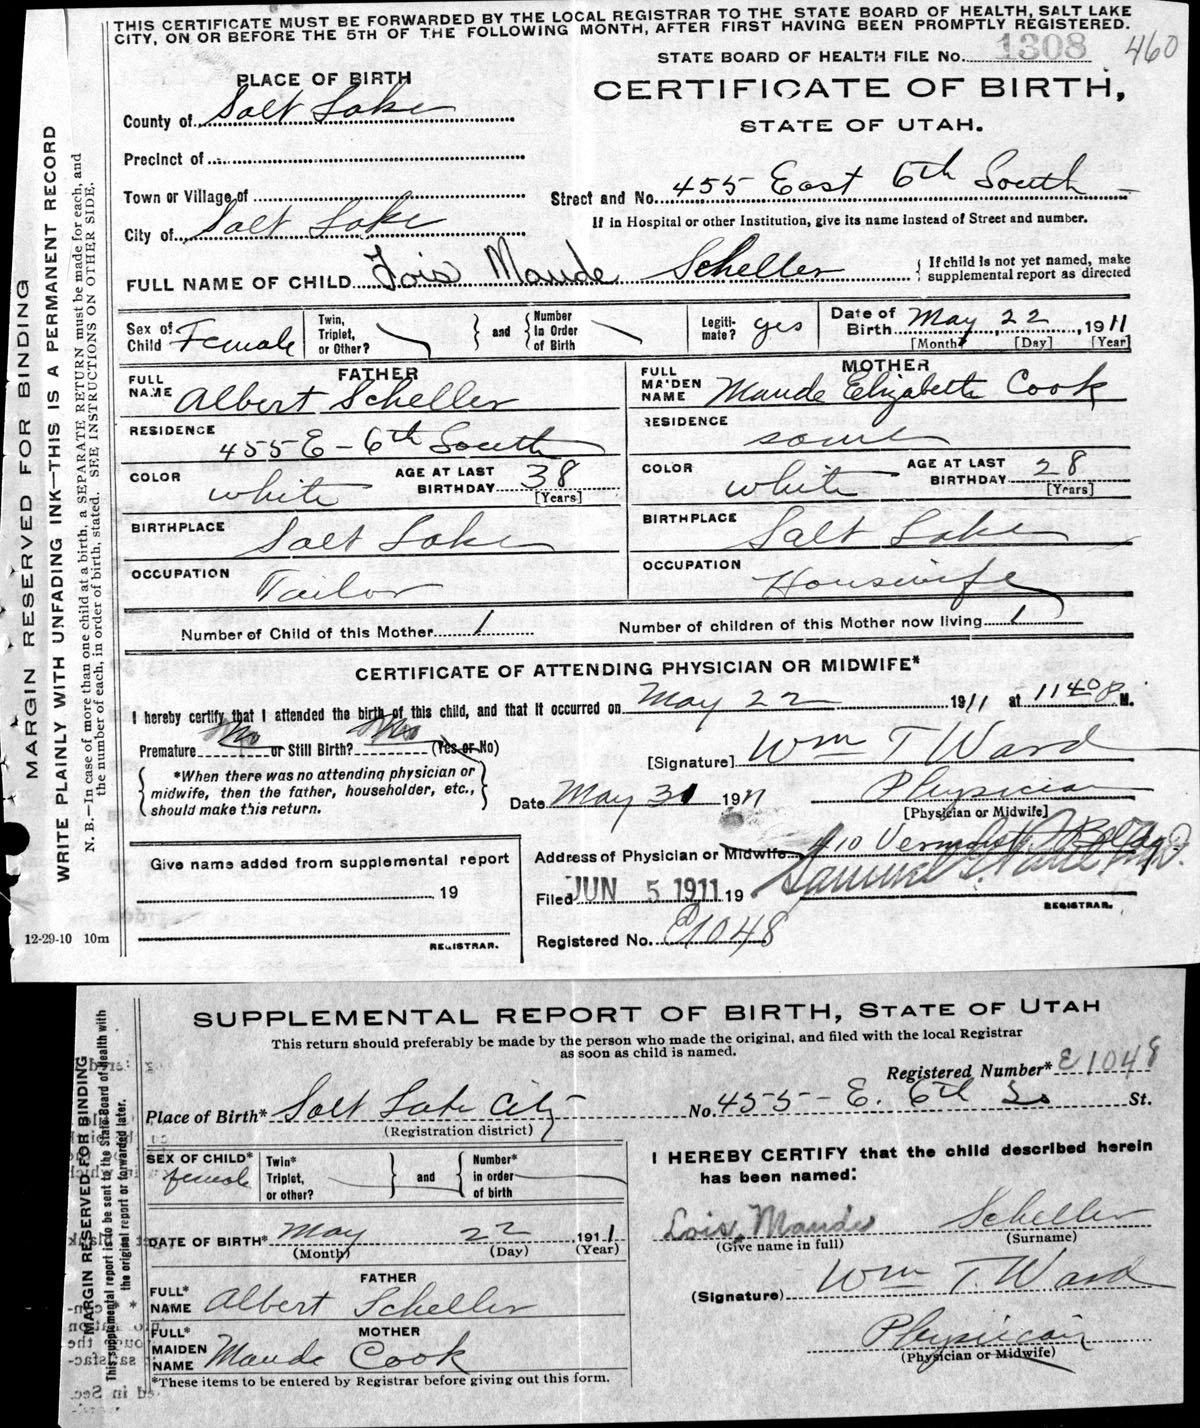 THIS CERTIFICATE MUST BE FORWARDED BY THE LOCAL REGISTRAR TO THE STATE BOARD OF HEALTH, SALT LAKE
CITY, ON OR BEFORE THE 5TH OF THE FOLLOWING MONTH, AFTER FIRST HAVING BEEN PROMPTLY REGISTERED.
STATE BOARD OF HEALTH FILE No. 1308 460
PLACE OF BIRTH
CERTIFICATE OF BIRTH,
STATE OF UTAH.
County of Salt Lake
Precinct of
Town or Village of
Street and No. 455 East 6th South
If in Hospital or other Institution, give its name instead of Street and number.
City of Salt Lake
FULL NAME OF CHILD Lois Maude Scheller
If child is not yet named, make
supplemental report as directed
Sex of Child Female
Twin, Triplet, or Other? and Number In Order of Birth
Legiti-mate? yes
Date of Birth May 22, 1911
[Month] [Day] [Year]
FATHER
FULL NAME Albert Scheller
RESIDENCE 455 E - 6th South
COLOR white AGE AT LAST BIRTHDAY 38 [Years]
BIRTHPLACE Salt Lake
OCCUPATION Tailor
MOTHER
FULL MAIDEN NAME Maude Elizabeth Cook
RESIDENCE same
COLOR white AGE AT LAST BIRTHDAY 28 [Years]
BIRTHPLACE Salt Lake
OCCUPATION Housewife
Number of Child of this Mother 1 Number of children of this Mother now living 1
CERTIFICATE OF ATTENDING PHYSICIAN OR MIDWIFE*
I hereby certify that I attended the birth of this child, and that it occurred on May 22 1911 at 1140 P M.
Premature No or Still Birth? No (Yes or No)
[Signature] Wm T Ward
*When there was no attending physician or
midwife, then the father, householder, etc.,
should make this return.
Date May 31 1911 Physician
[Physician or Midwife]
Give name added from supplemental report
19
REGISTRAR.
Address of Physician or Midwife 410 Vermont Bldg
Filed JUN 5 1911 19 Samuel G. Paul M.D.
REGISTRAR.
Registered No. 1048
12-29-10 10m
MARGIN RESERVED FOR BINDING
WRITE PLAINLY WITH UNFADING INK—THIS IS A PERMANENT RECORD
N. B.—In case of more than one child at a birth, a SEPARATE RETURN must be made for each, and
the number of each, in order of birth, stated. SEE INSTRUCTIONS ON OTHER SIDE.
SUPPLEMENTAL REPORT OF BIRTH, STATE OF UTAH
This return should preferably be made by the person who made the original, and filed with the local Registrar
as soon as child is named.
Registered Number* E1048
Place of Birth* Salt Lake City No. 455 - E. 6th So St.
(Registration district)
SEX OF CHILD* female
Twin* Triplet, or other? and Number* in order of birth
DATE OF BIRTH* May 22 1911
(Month) (Day) (Year)
FATHER
FULL* NAME Albert Scheller
MOTHER
FULL* MAIDEN NAME Maude Cook
*These items to be entered by Registrar before giving out this form.
I HEREBY CERTIFY that the child described herein
has been named:
Lois Maude Scheller
(Give name in full) (Surname)
(Signature) Wm T. Ward
Physician
(Physician or Midwife)
MARGIN RESERVED FOR BINDING
This supplemental report is to be sent to the State Board of Health with
the original report or forwarded later.